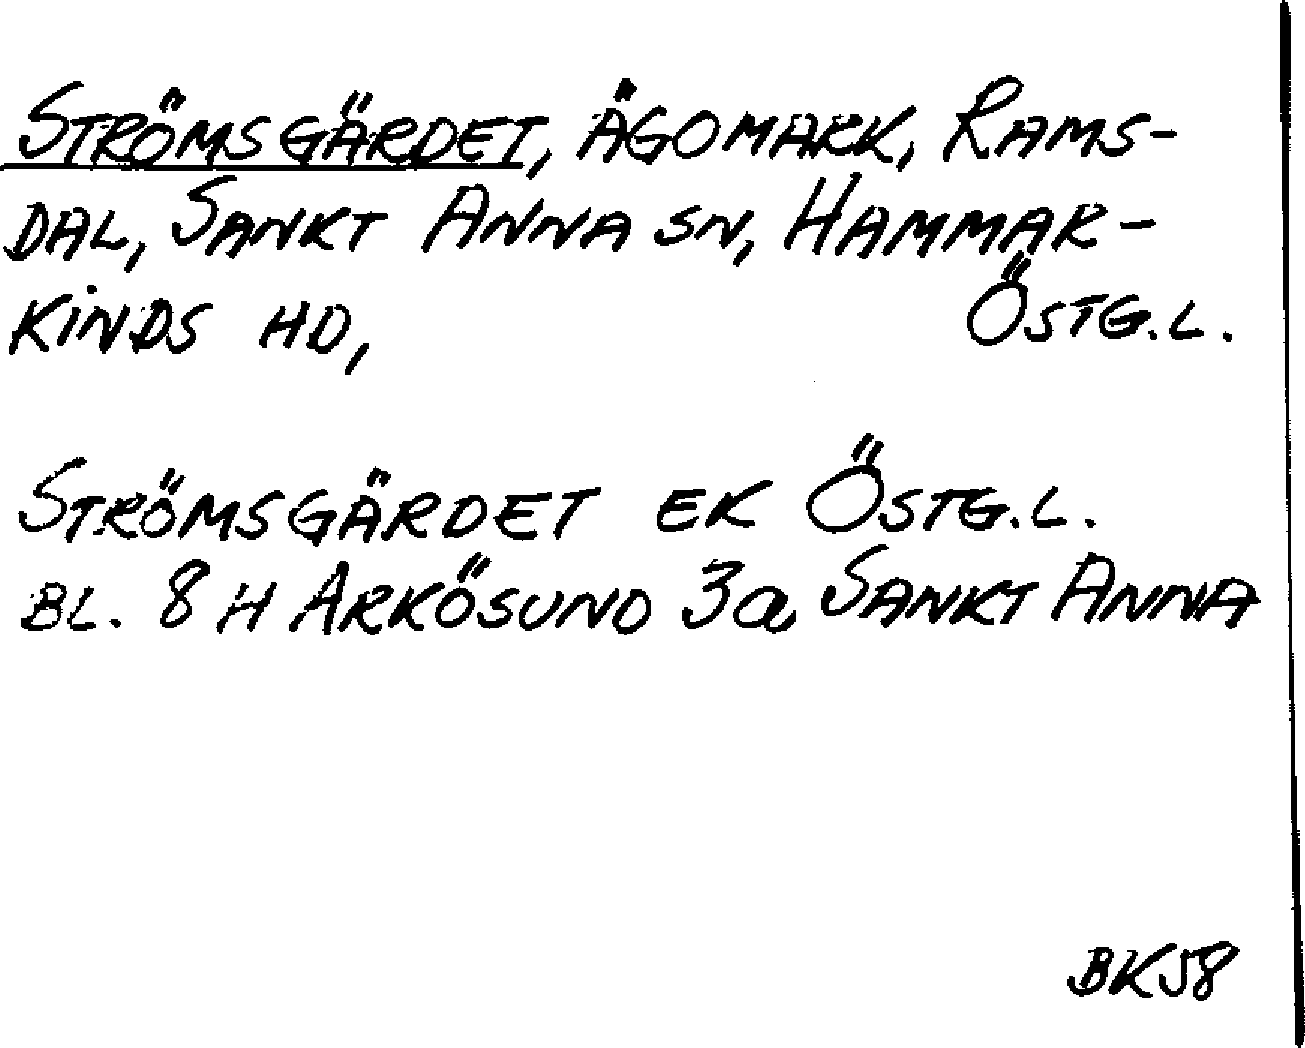 STRÖMSGÄRDET, ÄGOMARK, RAMS-
DAL, SANKT ANNA SN, HAMMAR-
KINDS HD, ÖSTG.L.
STRÖMSGÄRDET EK ÖSTG.L.
BL. 8 H ARKÖSUND 3a SANKT ANNA
BK58